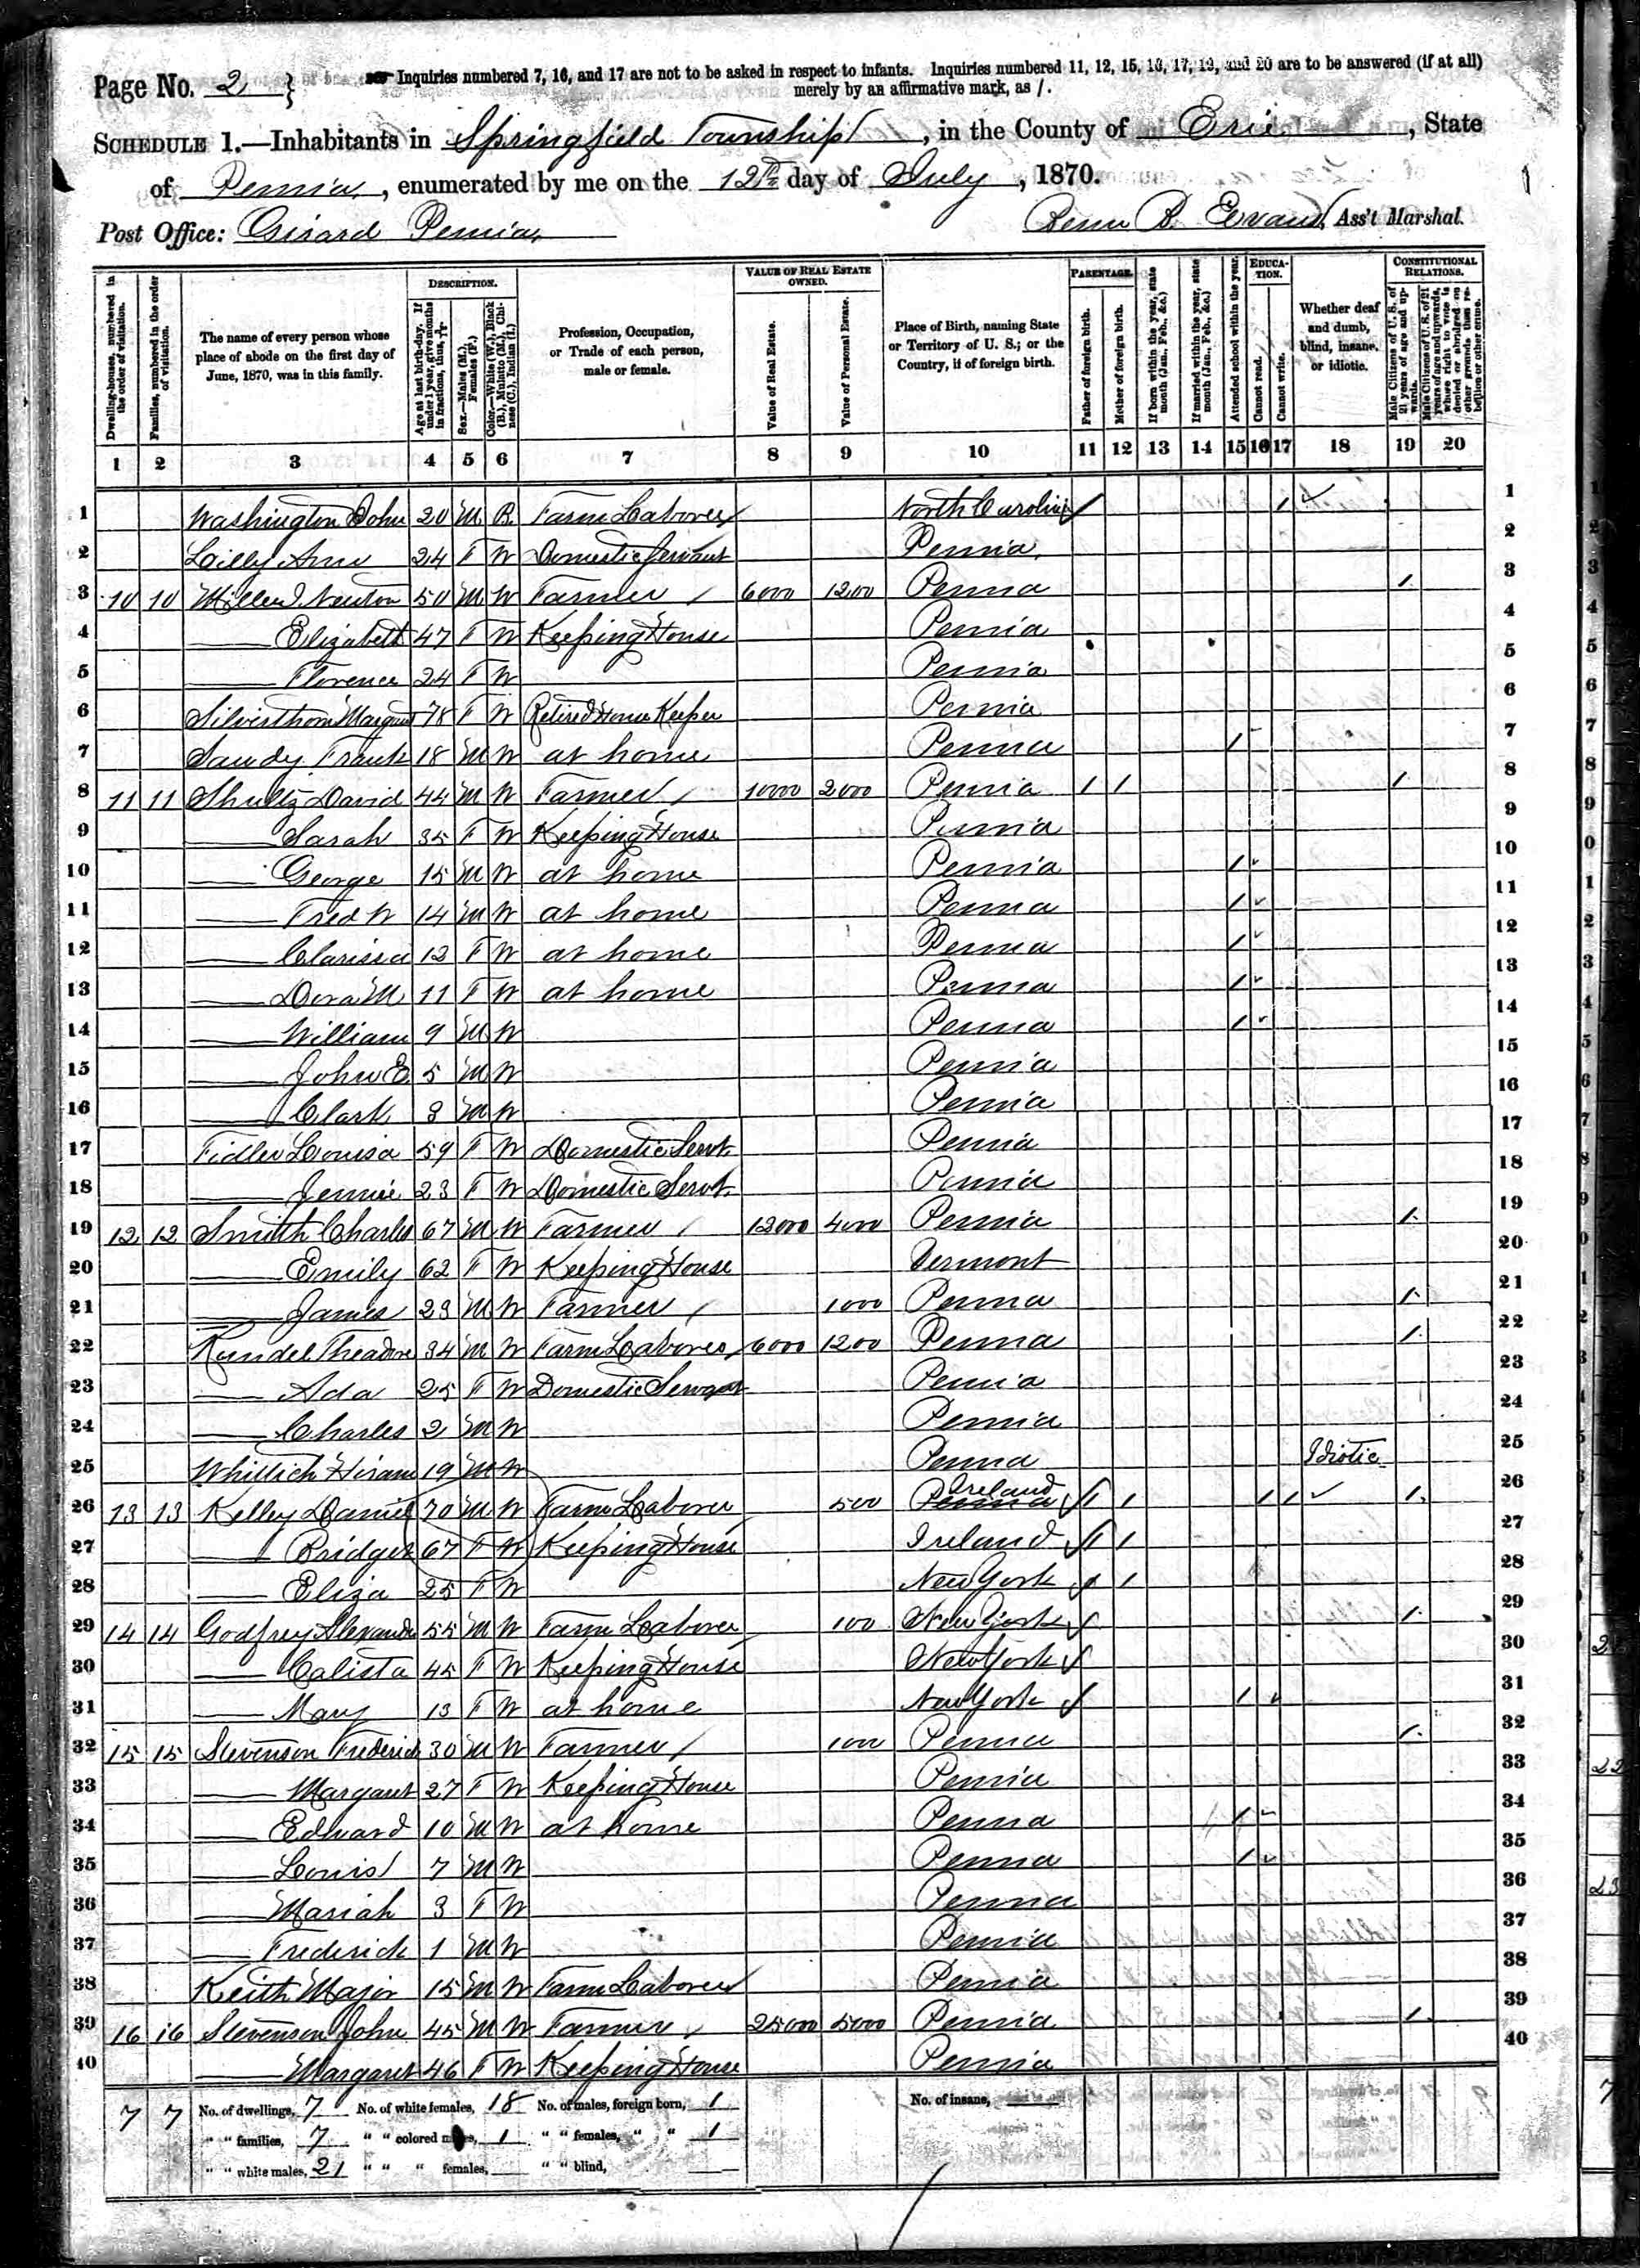 Page No. 2 } Inquiries numbered 7, 16, and 17 are not to be asked in respect to infants. Inquiries numbered 11, 12, 15, 16, 17, 19, and 20 are to be answered (if at all)
merely by an affirmative mark, as /.
SCHEDULE 1.—Inhabitants in Springfield Township, in the County of Erie, State
of Penna, enumerated by me on the 12th day of July, 1870.
Post Office: Girard Penna, B. Evans, Ass't Marshal.
Dwelling-houses, numbered in the order of visitation.
Families, numbered in the order of visitation.
The name of every person whose place of abode on the first day of June, 1870, was in this family.
DESCRIPTION.
Age at last birth-day. If under 1 year, give months in fractions, thus,
Sex.—Males (M.), Females (F.)
Color.—White (W.), Black (B.), Mulatto (M.), Chinese (C.), Indian (I.)
Profession, Occupation, or Trade of each person, male or female.
VALUE OF REAL ESTATE OWNED.
Value of Real Estate.
Value of Personal Estate.
Place of Birth, naming State or Territory of U. S.; or the Country, if of foreign birth.
PARENTAGE.
Father of foreign birth.
Mother of foreign birth.
If born within the year, state month (Jan., Feb., &c.)
If married within the year, state month (Jan., Feb., &c.)
EDUCATION.
Attended school within the year.
Cannot read.
Cannot write.
Whether deaf and dumb, blind, insane, or idiotic.
CONSTITUTIONAL RELATIONS.
Male Citizens of U. S. of 21 years of age and upwards.
Male Citizens of U. S. of 21 years of age and upwards, where right to vote is denied or abridged on other grounds than rebellion or other crime.
1 2 3 4 5 6 7 8 9 10 11 12 13 14 15 16 17 18 19 20
1 Washington John 20 M B Farm Laborer North Carolina / 1
2 Lilly Ann 24 F W Domestic Servant Penna 2
3 10 10 Miller Newton 50 M W Farmer 6000 1200 Penna / 3
4 — Elizabeth 47 F W Keeping House Penna 4
5 — Florence 24 F W Penna 5
6 Silverthorn Margaret 78 F W Retired House Keeper Penna 6
7 Sandy Frank 18 M W at home Penna / 7
8 11 11 Shultz David 44 M W Farmer 10000 2000 Penna / / / 8
9 — Sarah 35 F W Keeping House Penna 9
10 — George 15 M W at home Penna / 10
11 — Fred W 14 M W at home Penna / 11
12 — Clarissa 12 F W at home Penna / 12
13 — Dora M 11 F W at home Penna / 13
14 — William 9 M W Penna / 14
15 — John E 5 M W Penna 15
16 — Clark 3 M W Penna 16
17 Fidler Louisa 59 F W Domestic Servt Penna 17
18 — Jennie 23 F W Domestic Servt. Penna 18
19 12 12 Smith Charles 67 M W Farmer 12000 4000 Penna / 19
20 — Emily 62 F W Keeping House Vermont 20
21 — James 23 M W Farmer 1000 Penna / 21
22 Rundel Theadore 34 M W Farm Laborer 6000 1200 Penna / 22
23 — Ada 25 F W Domestic Servant Penna 23
24 — Charles 2 M W Penna 24
25 Hiram 19 M W Penna Idiotic 25
26 13 13 Kelley Daniel 70 M W Farm Laborer 500 Penna Ireland / / / / / 26
27 — Bridget 67 F W Keeping House Ireland / / 27
28 — Eliza 25 F W New York / / 28
29 14 14 Godfrey Alexander 55 M W Farm Laborer 100 New York / 29
30 — Calista 45 F W Keeping House New York 30
31 — Mary 13 F W at home New York / 31
32 15 15 Stevenson Frederick 30 M W Farmer 1000 Penna / 32
33 — Margaret 27 F W Keeping House Penna 33
34 — Edward 10 M W at home Penna / 34
35 — Louis 7 M W Penna / 35
36 — Mariah 3 F W Penna 36
37 — Frederick 1 M W Penna 37
38 Keith Major 15 M W Farm Laborer Penna 38
39 16 16 Stevenson John 45 M W Farmer 25000 5000 Penna / 39
40 — Margaret 46 F W Keeping House Penna 40
7 7 No. of dwellings, 7 No. of white females, 18 No. of males, foreign born, 1 No. of insane,
" " families, 7 " " colored males, 1 " " females, " " 1
" " white males, 21 " " " females, — " " blind, —